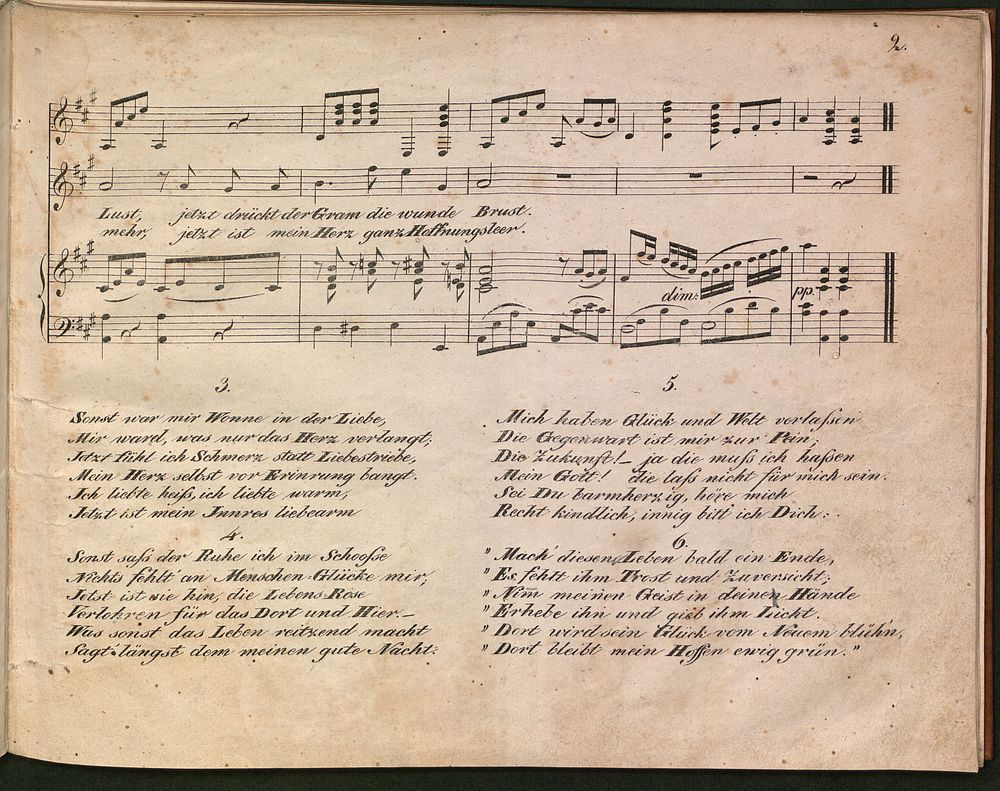 2.
Lust, jetzt drückt der Gram die wunde Brust.
mehr, jetzt ist mein Herz ganz Hoffnungsleer.
dim:
pp.
3.
Sonst war mir Wonne in der Liebe,
Mir ward, was nur das Herz verlangt;
Jetzt fühl ich Schmerz statt Liebestriebe,
Mein Herz selbst vor Erinrung bangt.
Ich liebte heiß, ich liebte warm,
Jetzt ist mein Innres liebearm
4.
Sonst saß der Ruhe ich im Schooße
Nichts fehlt' an Menschen-Glücke mir,
Jetst ist sie hin, die Lebens-Rose
Verlohren für das Dort und Hier_
Was sonst das Leben reitzend macht
Sagt's längst dem meinen gute Nacht:
5.
Mich haben Glück und Welt verlaßen
Die Gegenwart ist mir zur Pein;
Die Zukunft!_ ja die muß ich haßen
Mein Gott! die laß nicht für mich sein.
Sei Du barmherzig, höre mich
Recht kindlich, innig bitt ich Dich:
6.
" Mach' diesem Leben bald ein Ende,
" Es fehlt ihm Trost und Zuversicht;
" Nim meinen Geist in deinen Hände
" Erhebe ihn und gieb ihm Licht.
" Dort wird sein Glück vom Neuem blüh'n,
" Dort bleibt mein Hoffen ewig grün."